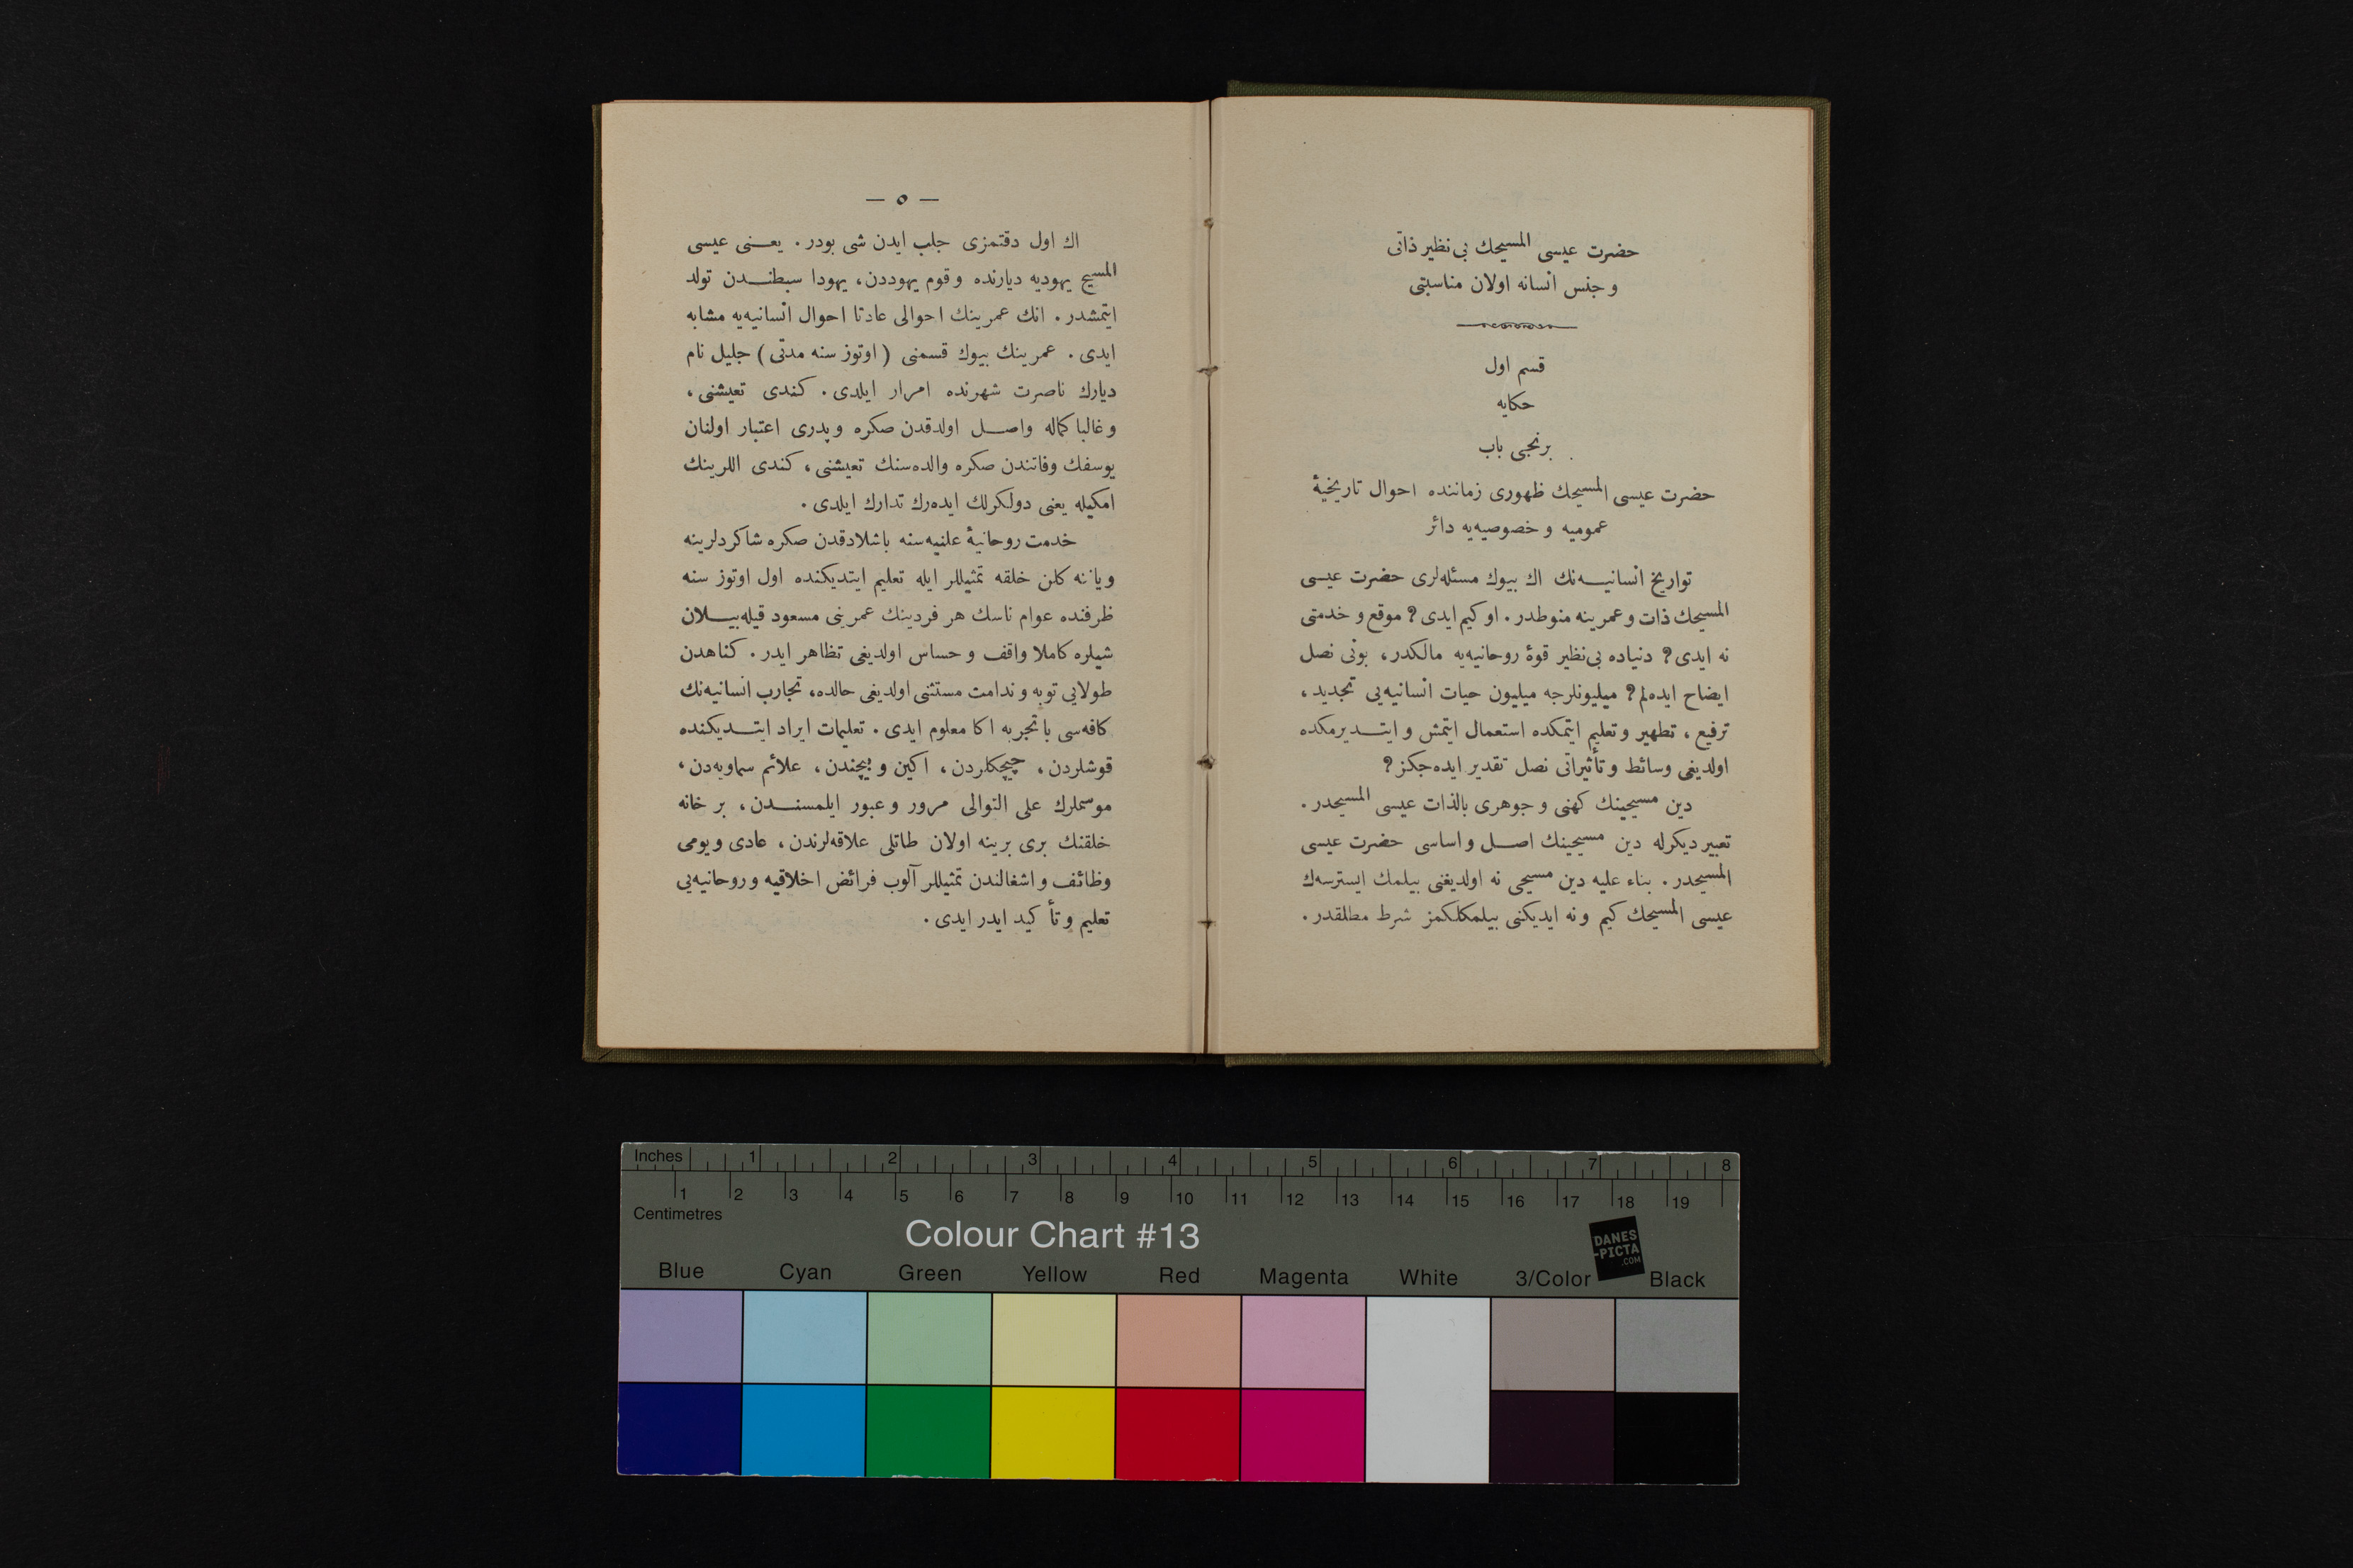 حضرت عيسى المسيحك بى نظير ذاتى
و جنس انسانه اولان مناسبتى
قسم اول
حكايه
برنجى باب
حضرت عيسى المسيحك ظهورى زماننده احوال تاريخيهٔ
عموميه و خصوصيه‌يه دائر
تواريخ انسانيه‌نك اك بيوك مسئله‌لرى حضرت عيسى
المسيحك ذات و عمرينه منوطدر. او كيم ايدى؟ موقع و خدمتى
نه ايدى؟ دنياده بى‌نظير قوهٔ روحانيه‌يه مالكدر، بونى نصل
ايضاح ايده‌لم؟ ميليونلرجه ميليون حيات انسانيه‌يى تجديد،
ترفيع، تطهير و تعليم ايتمكده استعمال ايتمش و ايتديرمكده
اولديغى وسائط و تأثيراتى نصل تقدير ايده‌جكز؟
دين مسيحينك كهنى و جوهرى بالذات عيسى المسيحدر.
تعبير ديكرله دين مسيحينك اصل و اساسى حضرت عيسى
المسيحدر. بناء عليه دين مسيحى نه اولديغنى بيلمك ايسترسه‌ك
عيسى المسيحك كيم و نه ايديكنى بيلمكلكمز شرط مطلقدر.
— ٥ —
اك اول دقتمزى جلب ايدن شى بودر. يعنى عيسى
المسيح يهوديه ديارنده و قوم يهوددن، يهودا سبطندن تولد
ايتمشدر. انك عمرينك احوالى عادتا احوال انسانيه‌يه مشابه
ايدى. عمرينك بيوك قسمنى (اوتوز سنه مدتى) جليل نام
ديارك ناصرت شهرنده امرار ايلدى. كندى تعيشنى،
و غالبا كماله واصل اولدقدن صكره و پدرى اعتبار اولنان
يوسفك وفاتندن صكره والده‌سنك تعيشنى، كندى اللرينك
امكيله يعنى دولكرلك ايده‌رك تدارك ايلدى.
خدمت روحانيهٔ علنيه‌سنه باشلادقدن صكره شاكردلرينه
و ياننه كلن خلقه تمثيللر ايله تعليم ايتديكنده اول اوتوز سنه
ظرفنده عوام ناسك هر فردينك عمرينى مسعود قيله‌بيلان
شيلره كاملا واقف و حساس اولديغى تظاهر ايدر. كناهدن
طولايى توبه و ندامت مستثنى اولديغى حالده، تجارب انسانيه‌نك
كافه‌سى با تجربه اكا معلوم ايدى. تعليمات ايراد ايتديكنده
قوشلردن، چيچكلردن، اكين و بيچندن، علائم سماويه‌دن،
موسملرك على التوالى مرور و عبور ايلمسندن، بر خانه
خلقنك برى برينه اولان طاتلى علاقه‌لرندن، عادى و يومى
وظائف و اشغالندن تمثيللر آلوب فرائض اخلاقيه و روحانيه‌يى
تعليم و تأكيد ايدر ايدى.
Inches 1 2 3 4 5 6 7 8
1 2 3 4 5 6 7 8 9 10 11 12 13 14 15 16 17 18 19
Centimetres
Colour Chart #13
DANES
-PICTA
.COM
Blue Cyan Green Yellow Red Magenta White 3/Color Black